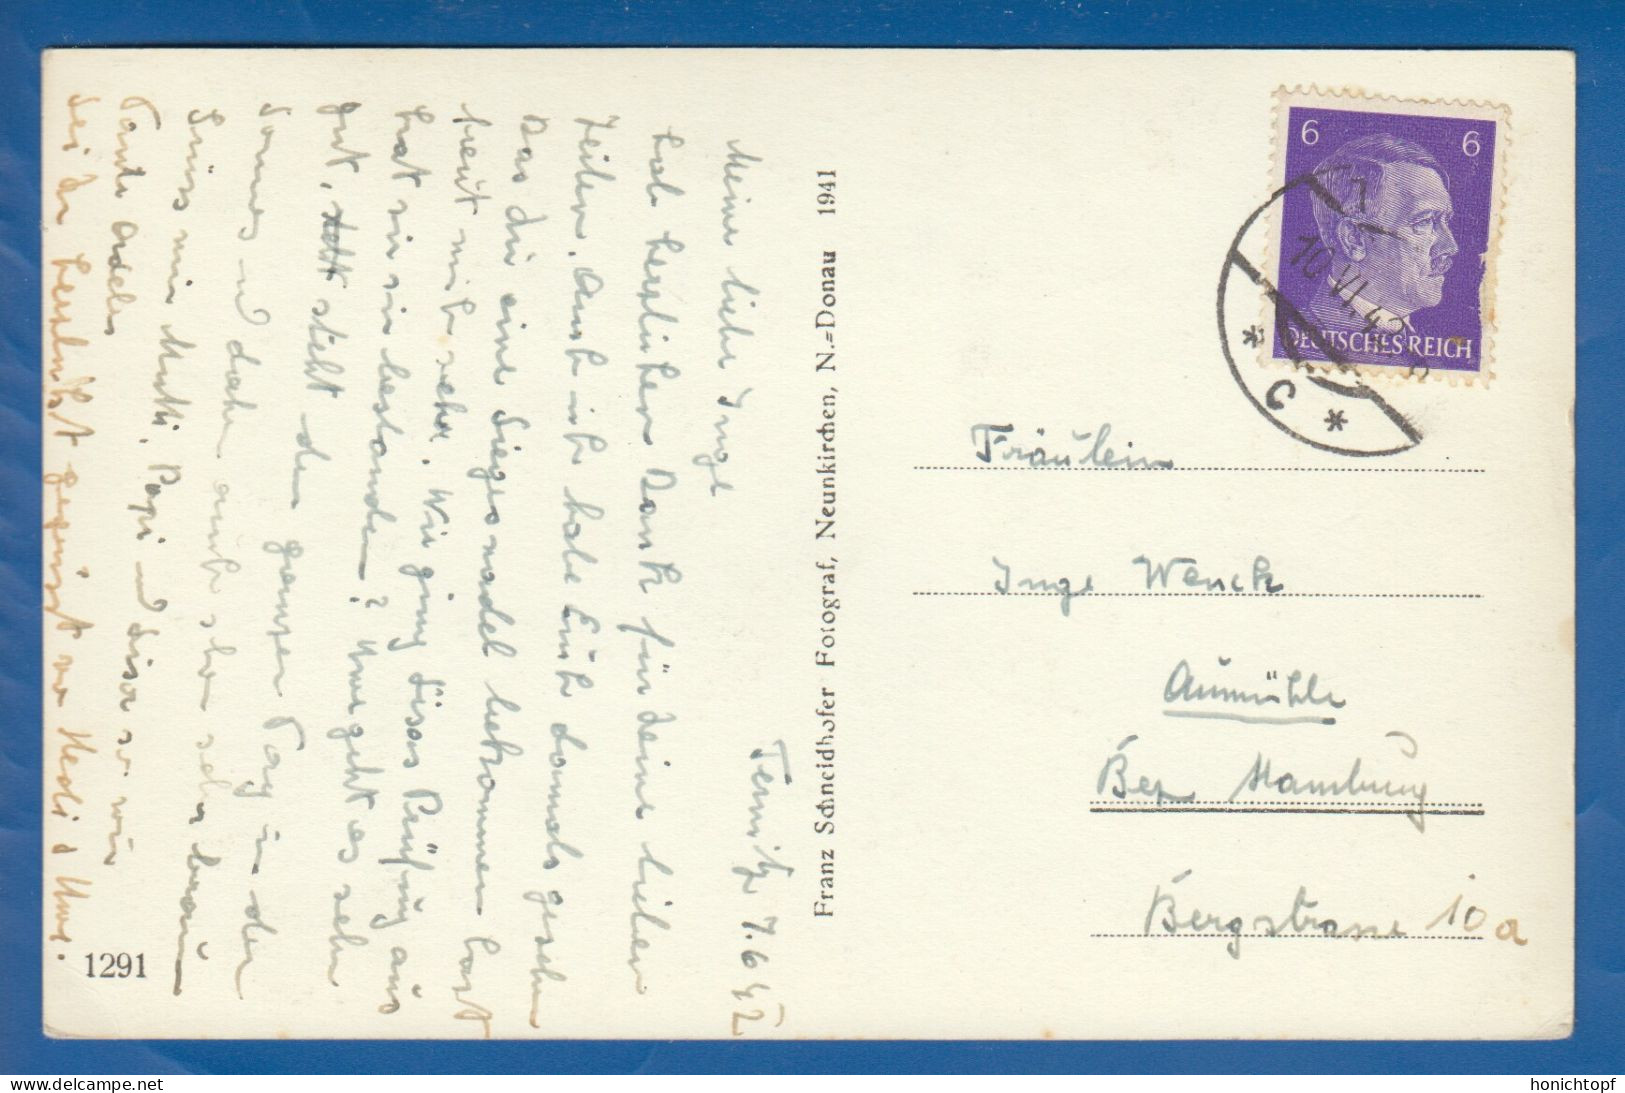 Ternitz 7.6.42
Meine liebe Inge
Hab herzlichen Dank für deine lieben
Zeilen. Auch ich habe Euch damals gesehen
Das du eine Siegesnadel bekommen hast
freut mich sehr. Wie ging Lisas Prüfung aus
hat sie sie bestanden? Uwe geht es sehr
gut, steht den ganzen Tag in der
Sonne und daher auch schon sehr braun
Grüss mir Mutti, Papi und Lisa
Tante Adele
Sei du herzlichst gegrüsst von Hedi u Uwe.
1291
Franz Schneidhofer Fotograf, Neunkirchen, N.=Donau 1941
6 6
DEUTSCHES REICH
10. VI. 42
c
Fräulein
Inge Wenck
Aumühle
Bez Hamburg
Bergstrasse 10a
honichtopf